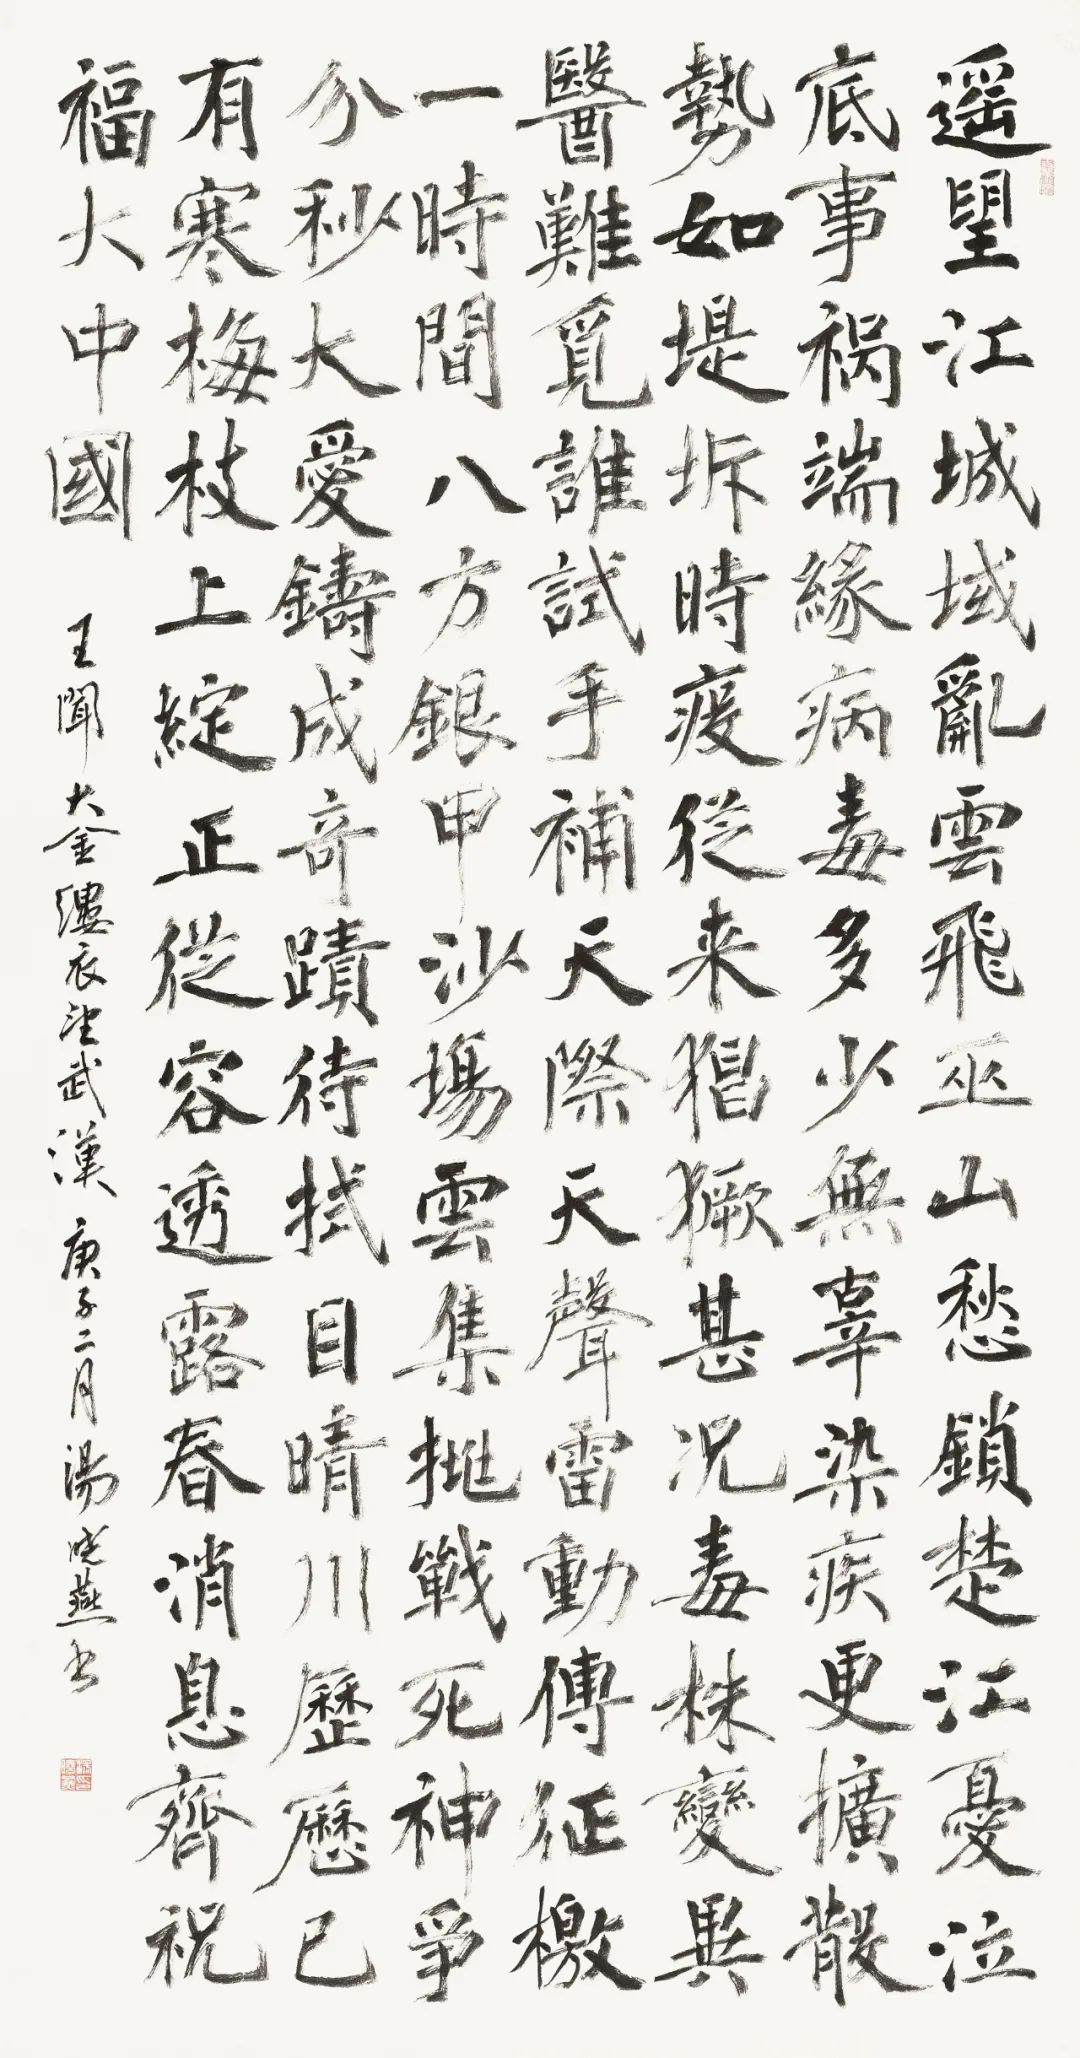 遥望江城域亂雲飛巫山愁鎖楚江憂泣
底事祸端緣病毒多少無辜染疾更擴散
勢如堤坼時疫從来猖獗甚况毒株變異
醫難覓誰試手補天際天聲雷動傳征檄
一時間八方銀甲沙場雲集挑戰死神爭
分秒大愛鑄成奇蹟待拭目晴川歷歷已
有寒梅枝上綻正從容透露春消息齊祝
福大中國
王聞大金縷衣望武漢庚子二月湯曉燕书